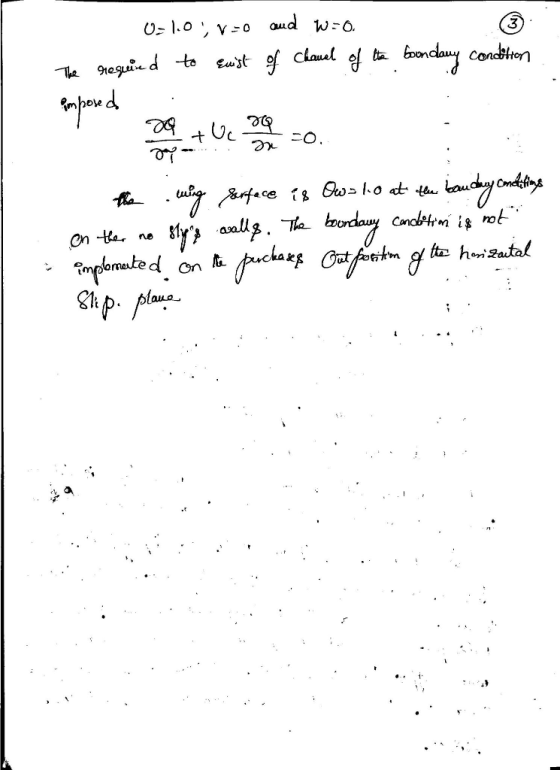 U=1.0 ; v=0 and W=0.
③
The required to exist of Chanel of the boundary condition
imposed
∂Q/∂T + Uc ∂Q/∂x =0.
the wing Surface is Θw=1.0 at the boundary conditions
on the no slip's walls. The boundary condition is not
implemented on the purchases Out position of the horizontal
Slip. plane